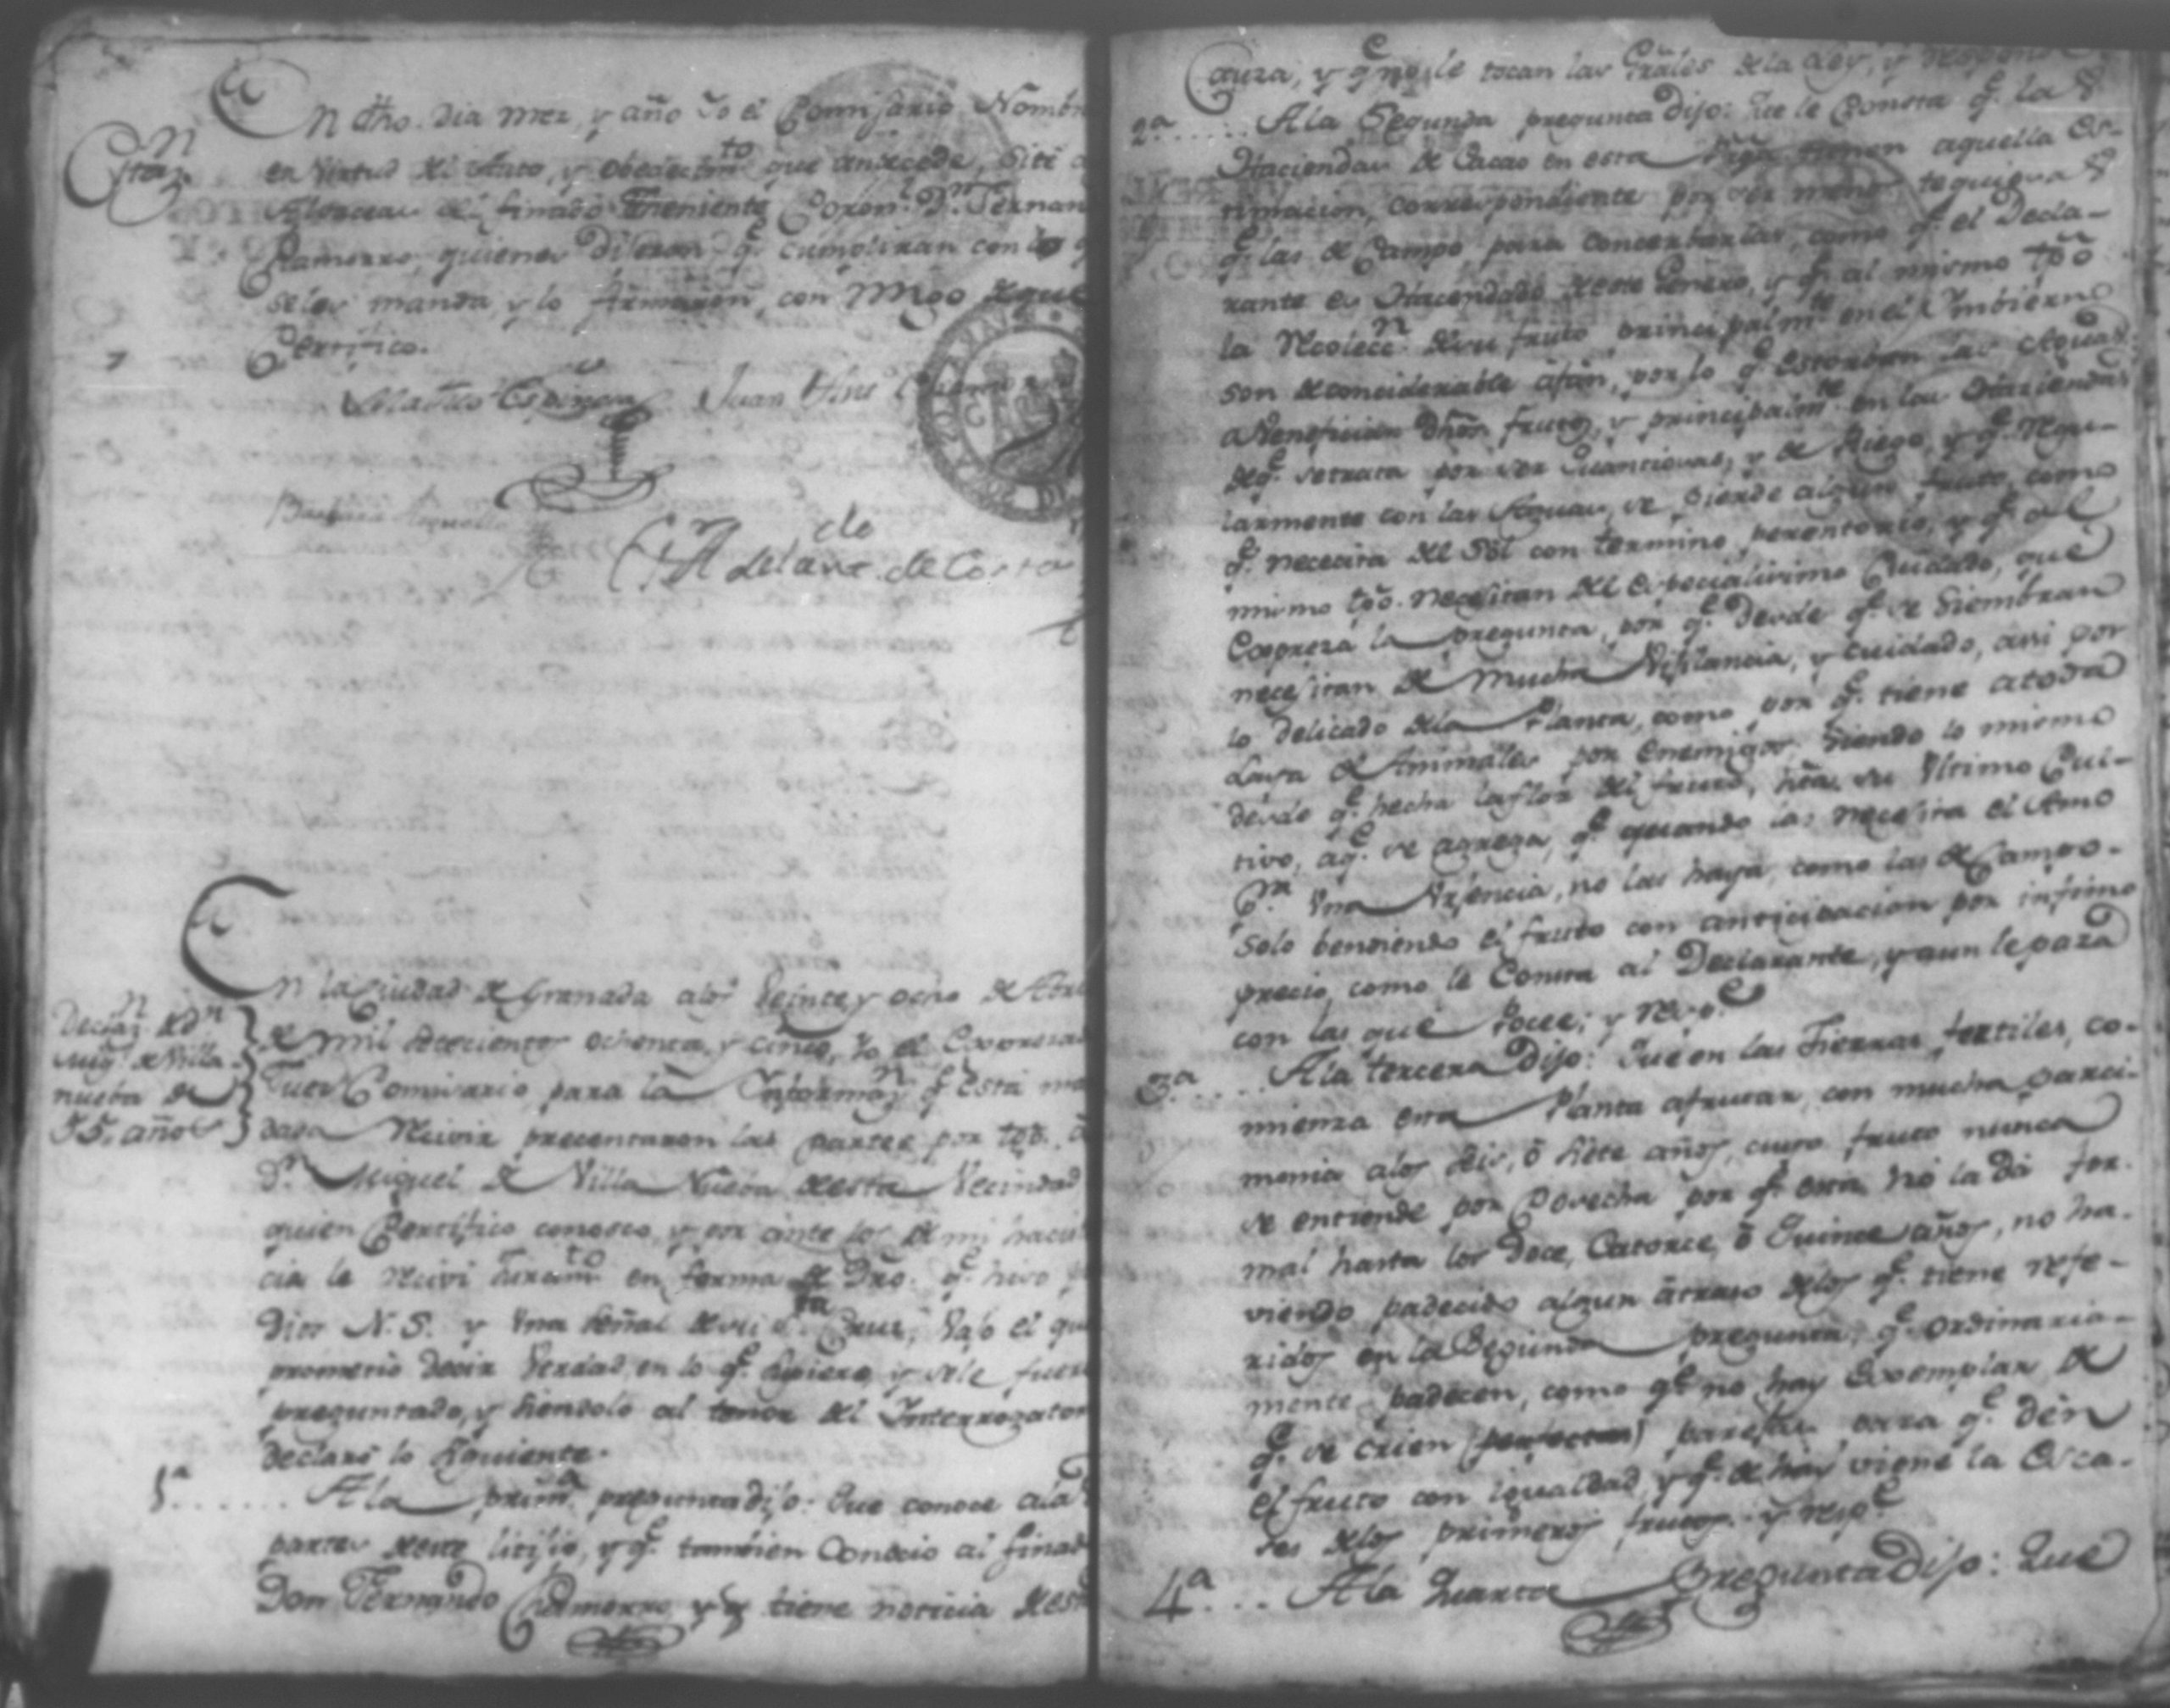 En dho. dia mez, y año Yo el Comisario Nombr
Citaz.n
en Virtud del Auto, y obedecim.to que antecede, Sité a
Alvaceas del finado Theniente Coron.l D.n Fernan
Chamorro, quienes Dixeron q.e cumpliran con lo q
seles manda, y lo firmaron, con migo de que
Certifico.
Juan
delante. de
En la Ciudad de Granada a los Veinte y ocho de Abri
Declaz.n de D.n
Mig.l de Villa
nueba de
55. años
de mil setecientos ochenta, y cinco, Yo el Expresa
Juez Comisario para la Informaz.n q.e está ma
dada Recivir precentaron las partes por tgo. a
D.n Miguel de Villa Nueba desta Vecindad
quien Certifico conosco, y por ante los de mi
cia le Recivi Juram.to en forma de Dro. q.e hiso
Dios N. S. y Una señal de su S.ta Cruz, bajo el qu
prometió Decir Verdad en lo q.e supiere, y sele fuere
preguntado, y siendolo al tenor del Interrogator
declaró lo siguiente.
1.a ...... A la prim.a pregunta dijo: Que conoce a la
partes deste litijio, y q.e tambien Conocio al finad
Don Fernando Chamorro y q.e tiene noticia dest
Cauza, y q.e no le tocan las Grales de la Ley, y
2.a ..... A la Segunda pregunta Dijo: Que le Consta q.e las
Haciendas de Cacao en esta tienen aquella es-
timacion, correspondiente por ser menos
q.e las de Campo para concerbarlas, como q.e el Decla-
rante es Hacendado deste Genero, y q.e al mismo tpõ
la Recolecc.n de su fruto principalm.te en el Imbierno
son de conciderable afan, por lo q.e estorban las Aguas
a Beneficiar dhos frutos, y principalm.te en las Haciendas
de q.e se trata por ser y de Riego, y q.e Regu-
larmente con las Aguas, se pierde algun fruto, como
q.e necesita del Sol con termino perentorio, y q.e al
mismo tpõ. necesitan del especialisimo Cuidado, que
Expreza la pregunta, por q.e desde q.e se Siembran
necesitan de mucha Vijilancia, y cuidado, asi por
lo delicado de la Planta, como por q.e tiene atoda
Laya de Animales por Enemigos, Siendo lo mismo
desde q.e hecha la flor del fruto, hta. su Ultimo Cul-
tivo, a q.e se agrega, q.e quando las necesita el Amo
en Una Urjencia, no las haya, como las de Campo.
Solo bendiendo el fruto con anticipacion por infimo
precio, como le Consta al Declarante, y aun le pasa
con las que Pocee; y resp.e
3.a .... A la tercera Dijo: Que en las Tierras fertiles, co-
mienza esta Planta afrutar, con mucha parci-
monia alos seis, ô siete años, cuyo fruto nunca
se entiende por Covecha por q.e esta, no la dá for-
mal hasta los Doce, Catorce, ô Quince años, no ha-
viendo padecido algun átrazo delos q.e tiene refe-
ridos en la Segunda pregunta, q.e ordinaria-
mente padecen, como q.e no hay Exemplar de
q.e se crien parejas para q.e dén
el fruto con igualdad, y q.e de hay viene la Esca-
ses delos primeros frutos. y resp.e
4.a ... A la Quarta Pregunta Dijo: Que